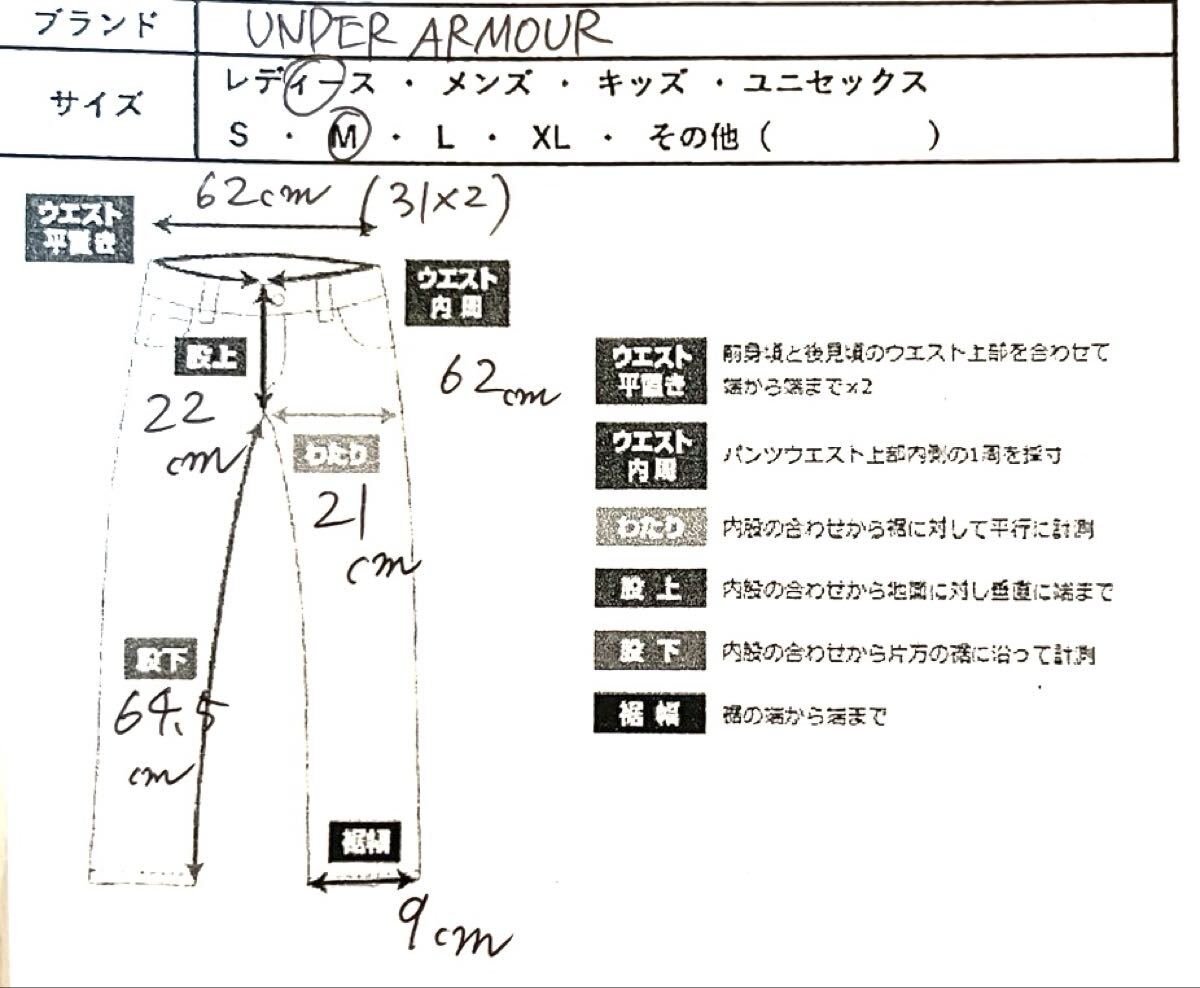 ブランド UNDER ARMOUR
サイズ レディース ・ メンズ ・ キッズ ・ ユニセックス
S ・ M ・ L ・ XL ・ その他 ( )
62cm (31×2)
ウエスト
平置き
ウエスト
内周
62cm
股上
22
cm
わたり
21
cm
股下
64.5
cm
裾幅
9cm
ウエスト
平置き
前身頃と後見頃のウエスト上部を合わせて
端から端まで×2
ウエスト
内周
パンツウエスト上部内側の1周を採寸
わたり 内股の合わせから裾に対して平行に計測
股上 内股の合わせから地面に対し垂直に端まで
股下 内股の合わせから片方の裾に沿って計測
裾幅 裾の端から端まで